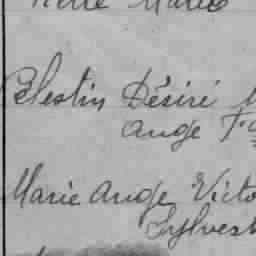 Marie
Célestin Désiré
Ange
Marie Ange Victo
Sylvest